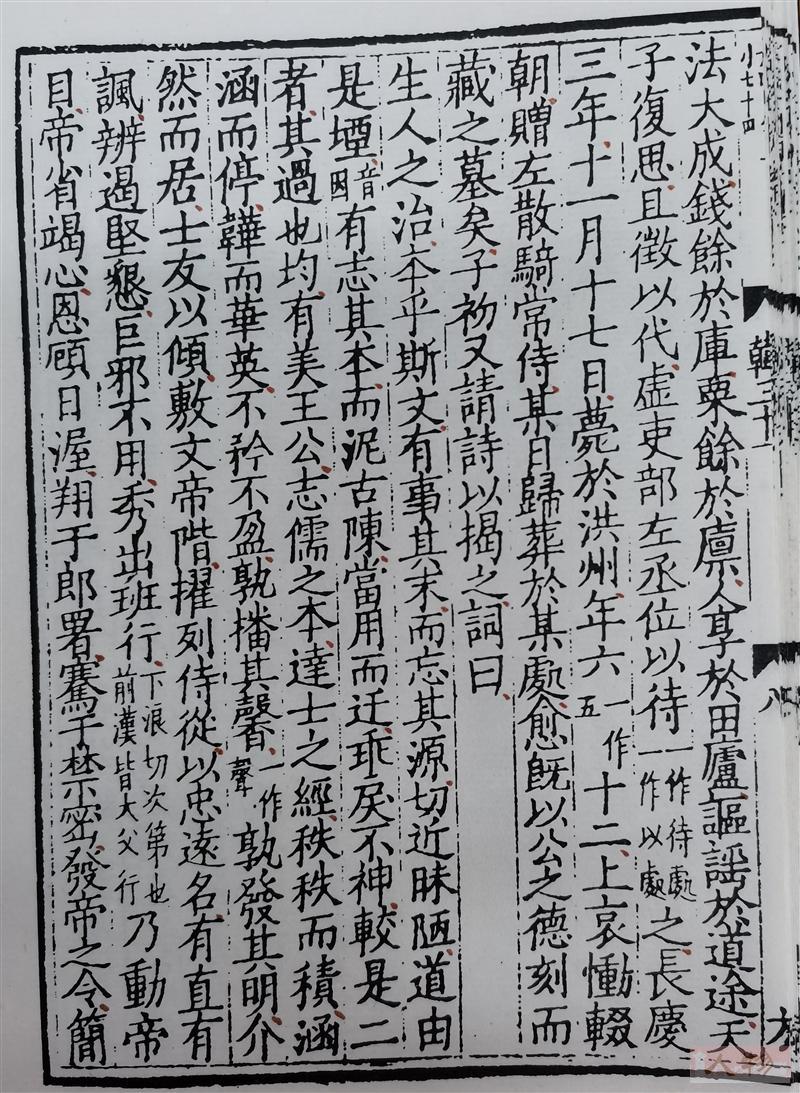 法大成錢餘於庫粟餘於廩人享於田廬謳謡於道途天
子復思且徵以代虚吏部左丞位以待一作待處一作以處之長慶
三年十一月十七日薨於洪州年六五一作十二上哀慟輟
朝贈左散騎常侍某日歸葬於某處愈旣以公之德刻而
藏之墓矣子初又請詩以揭之詞曰
生人之治本乎斯文有事其末而忘其源切近昧陋道由
是堙音因有志其本而泥古陳當用而迂乖戾不神較是二
者其過也均有美王公志儒之本達士之經秩秩而積涵
涵而停韡而華英不矜不盈孰播其馨一作聲孰發其明介
然而居士友以傾敷文帝階擢列侍從以忠遠名有直有
諷辨遏堅懇巨邪不用秀出班行下浪切次第也前漢皆大父行乃動帝
目帝省竭心恩顧日渥翔于郎署騫于禁密發帝之令簡
小七十四
韓三十一
八
大初